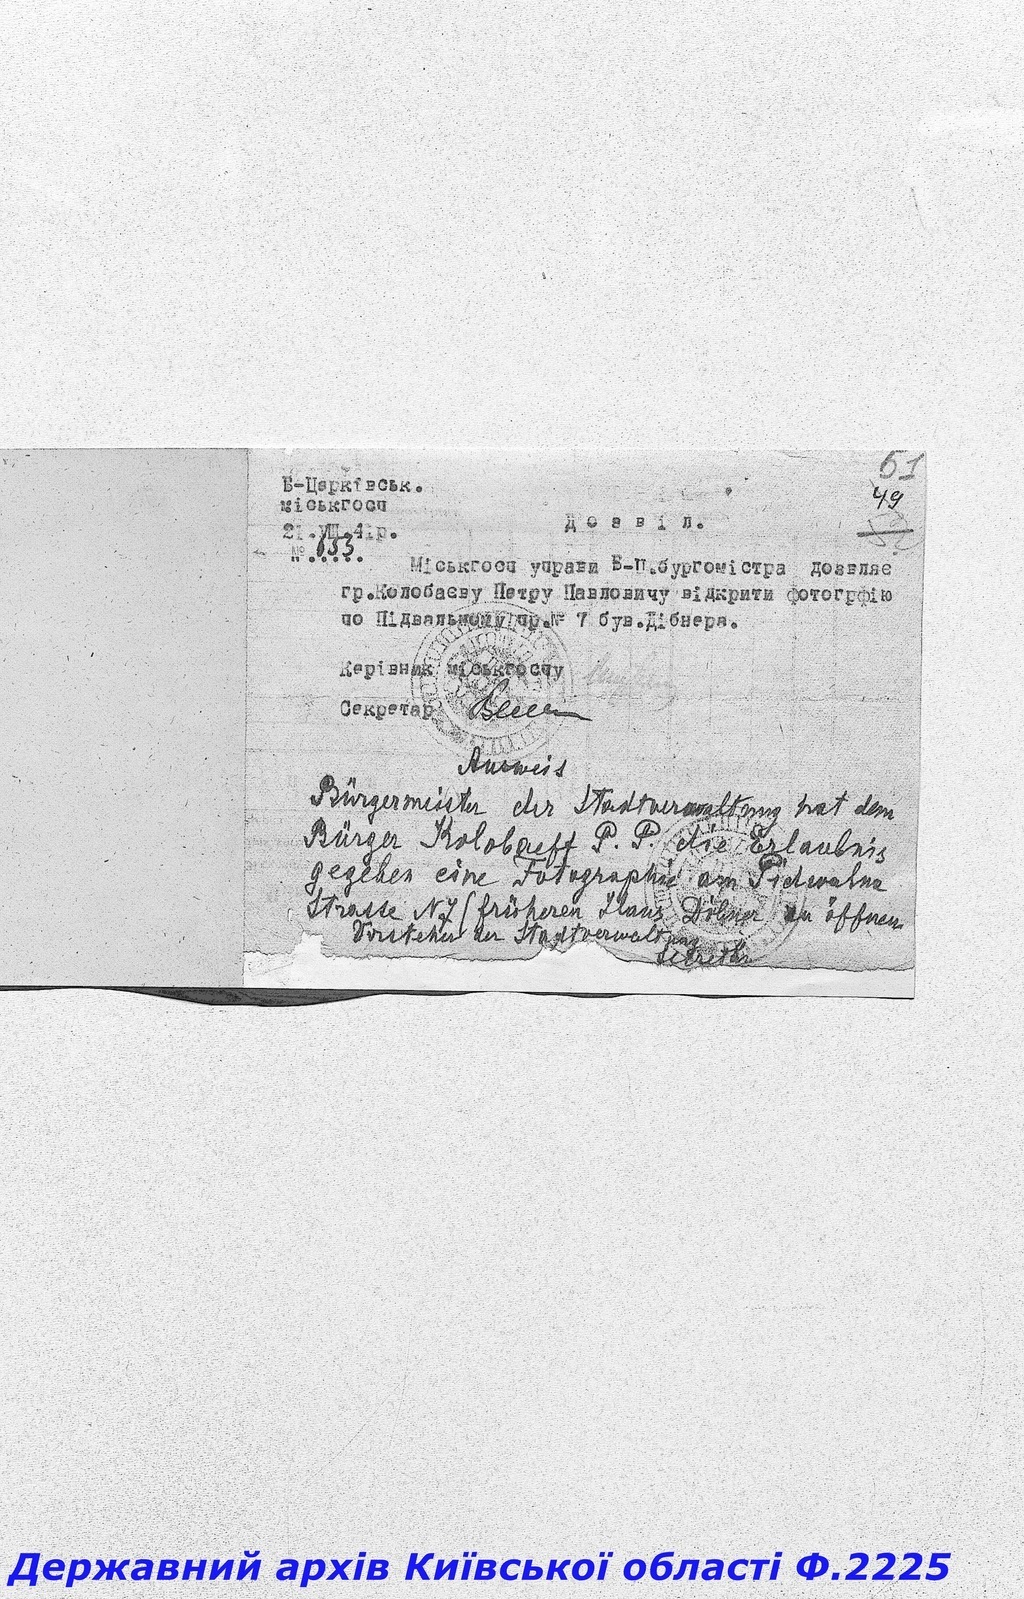 51
49
Б-Церківськ.
міськгосп
21.VIII.41р.
№ 033
Д о з в і л.
Міськгосп управи Б-Ц.бургомістра дозвляє
гр.Колобаєву Петру Павловичу відкрити фотогрфію
по Підвальному пр.№ 7 був.Дібнера.
Керівник міськгоспу
Секретар
Ausweis
Bürgermeister der Stadtverwaltung hat dem
Bürger Kolobaeff P. P. die Erlaubnis
gegeben eine Fotographie am Pidwalna
Strasse N7 (früheren Haus Döbner zu öffnen
Vorsteher der Stadtverwaltung
Державний архів Київської області Ф.2225